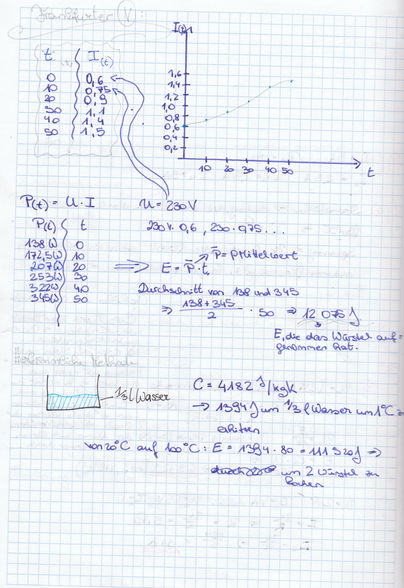 Frankfurter V:
t I(t)
0 0,6
10 0,75
20 0,9
30 1,1
40 1,4
50 1,5
I(t)
1,6
1,4
1,2
1,0
0,8
0,6
0,4
0,2
10 20 30 40 50 t
P(t) = U · I U = 230V
230V · 0,6 , 230 · 0,75 ...
P(t) t
138W 0
172,5W 10
207W 20
253W 30
322W 40
345W 50
P̄ = P Mittelwert
⇒ E = P̄ · t,
Durchschnitt von 138 und 345
⇒ 138+345/2 · 50 ⇒ 12 075 J
E, die das Würstel auf-
genommen hat.
1/3 l Wasser
C = 4182 J/kgK
→ 1394 J um 1/3 l Wasser um 1°C zu
erhitzen
von 20°C auf 100°C : E = 1394 · 80 = 111520 J ⇒
um 2 Würstel zu
kochen